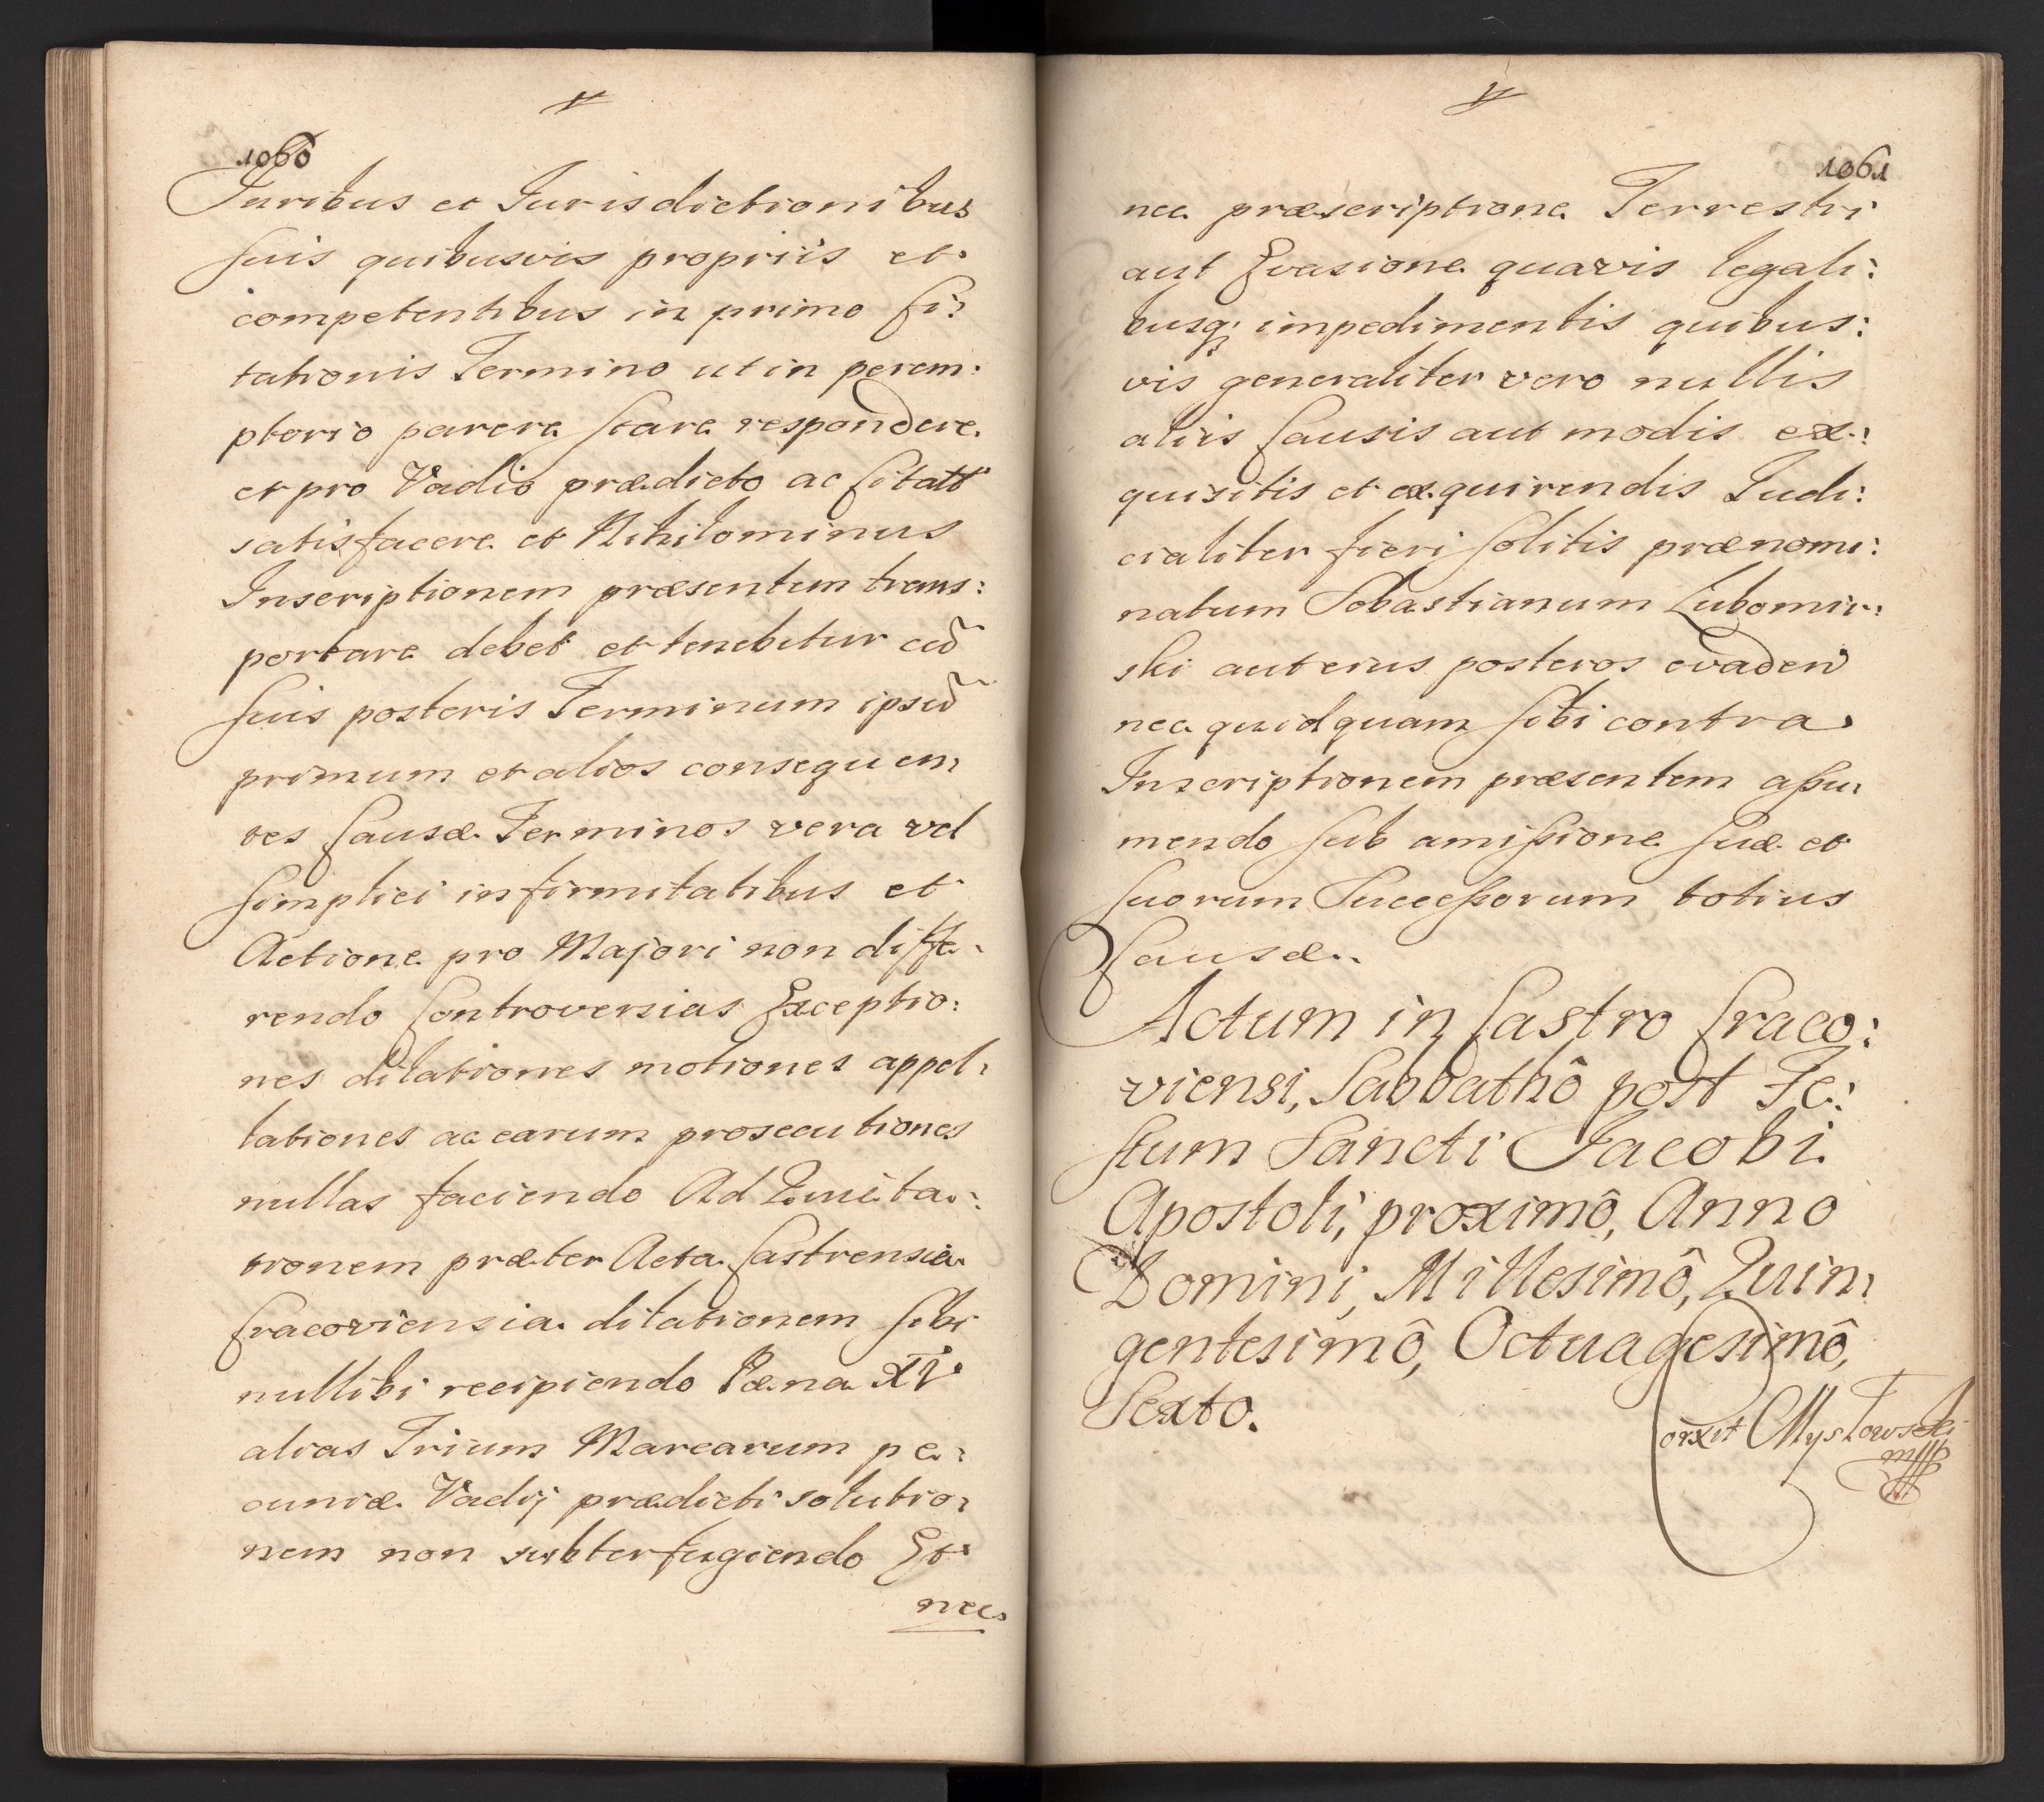 1060
Juribus et Jurisdictionibus
suis quibusvis propriis et
competentibus in primo Ci:
tationis Termino ut in perem:
ptorio parere stare respondere
et pro Vadio prædicto ac Citatt
satisfacere et Nihilominus
Inscriptionem præsentem trans:
portare debet et tenebitur cũ
suis posteris Terminum ipsũ
primum et alios consequen:
tes Causæ Terminos vera vel
simplici infirmitatibus et
Actione pro Majori non diffe:
rendo Controversias Exceptio:
nes dilationes motiones appel:
lationes ac earum prosecutiones
nullas faciendo Ad Quieta:
tionem præter Acta Castrensia
Cracoviensia dilationem sibi
nullibi recipiendo Pæna XV
alias Trium Marcarum pe:
cuniæ Vadij prædicti solutio:
nem non subterfugiendo Et
nec
1061
nec præscriptione Terrestri
aut Evasione quavis legali:
busq; impedimentis quibus:
vis generaliter vero nullis
aliis Causis aut modis ex:
quisitis et exquirendis Judi:
cialiter fieri solitis prænomi:
natum Sobastianum Lubomir:
ski aut eius posteros evaden
nec quidquam sibi contra
Inscriptionem præsentem assu:
mendo sub amissione suæ et
suorum Successorum totius
Causæ.
Actum in Castro Craco:
viensi, Sabbathô post Fe:
stum Sancti Jacobi
Apostoli, proximô, Anno
Domini, Millesimô, Quin:
gentesimô, Octuagesimô,
Sexto.
orxit Mysłowski